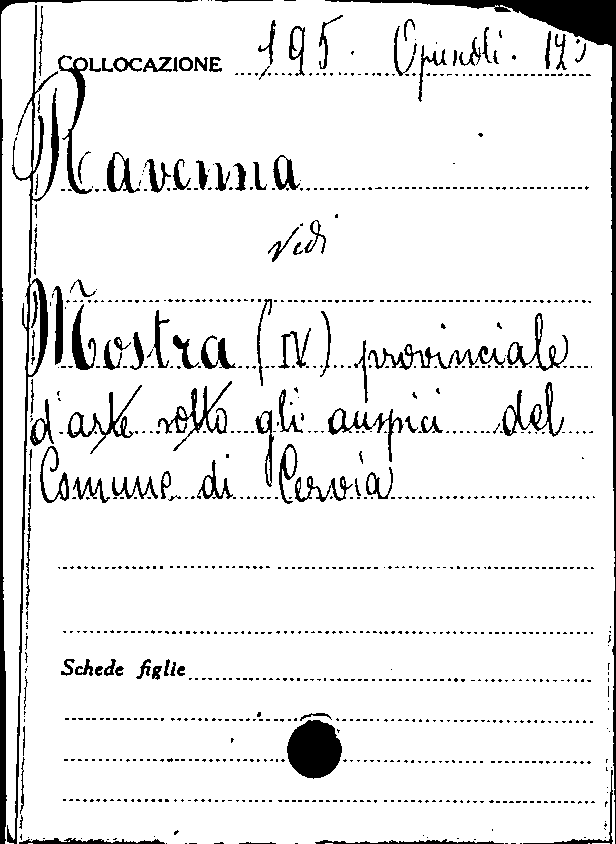 COLLOCAZIONE 195. Opuscoli.
Ravenna
vedi
Mostra (IV) provinciale
d'arte sotto gli auspici del
Comune di Cervia
Schede figlie